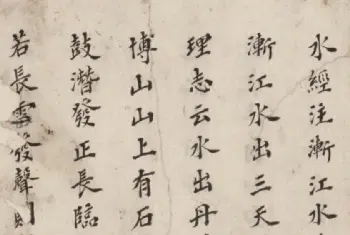 水經注漸江水
漸江水出三天
理志云水出丹
博山山上有石
鼓潛發正長臨
若長發聲則